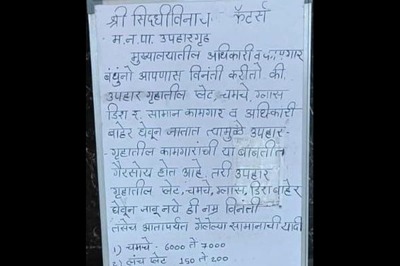 श्री सिध्धीविनायक कॅटर्स
म.न.पा. उपहारगृह
मुख्यालयातील अधिकारी व कामगार
बंधुंनो आपणास विनंती करीतो की
उपहार गृहातील प्लेट, चमचे, ग्लास
डिश इ. सामान कामगार व अधिकारी
बाहेर घेवून जातात त्यामुळे उपहार-
गृहातील कामगारांची या बाबतीत
गैरसोय होत आहे. तरी उपहार
गृहातील प्लेट, चमचे, ग्लास, डिश बाहेर
घेवून जावू नये ही नम्र विनंती
तसेच आतापर्यंत गेलेल्या सामानाची यादी
१) चमचे - 6000 ते 7000
२) लंच प्लेट 150 ते 200